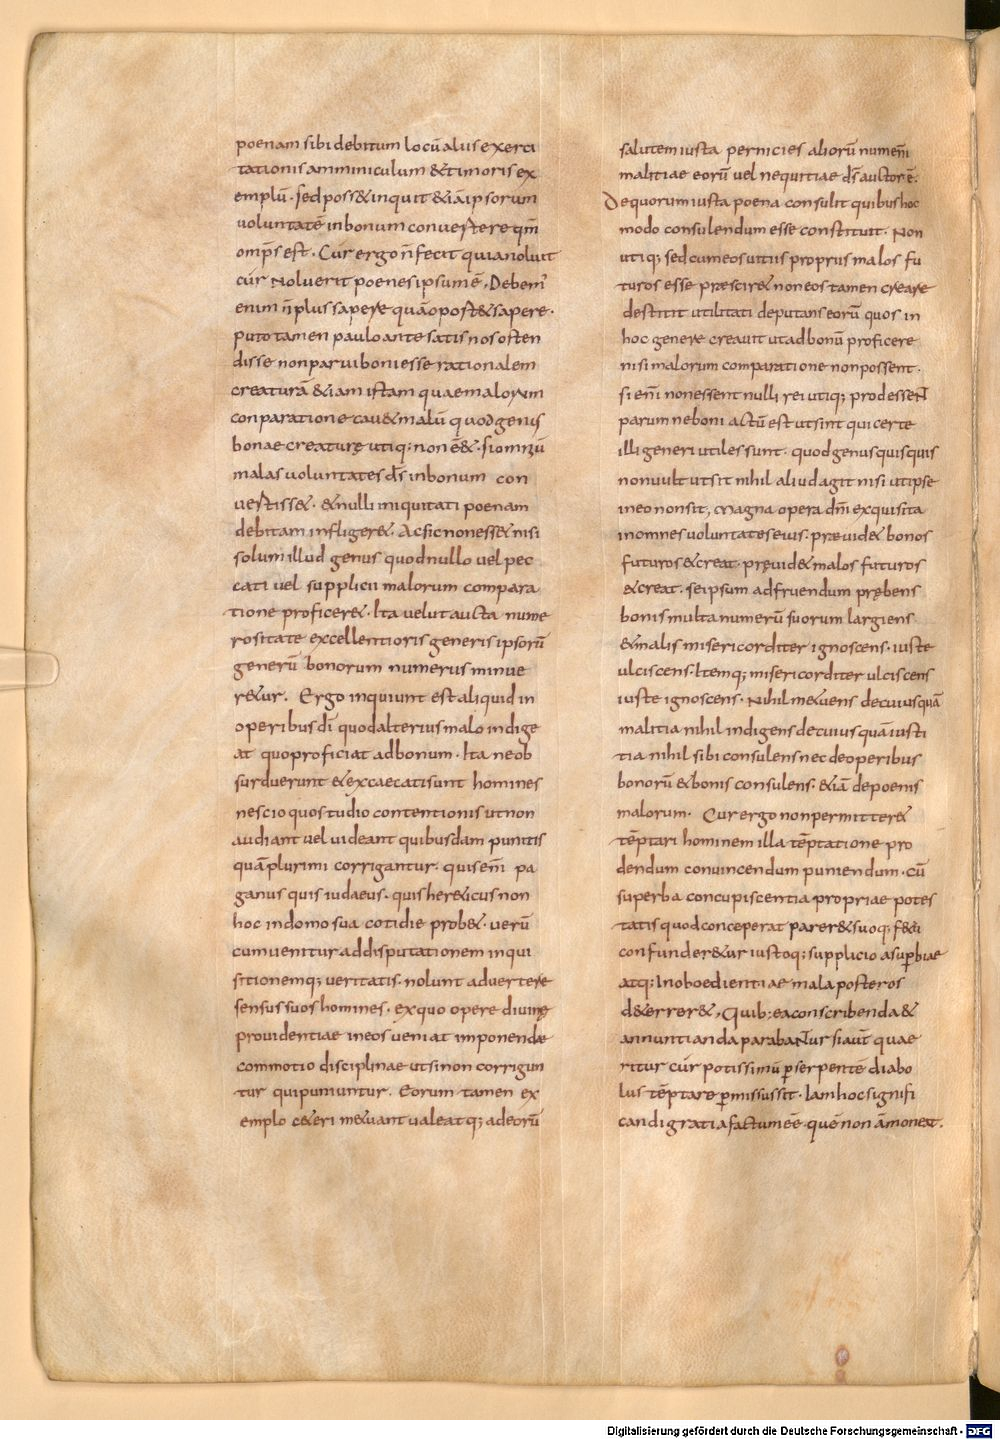 poenam sibi debitum locū aliis exerci
tationis amminiculum & timoris ex
emplū · sed poss& inquit &iā ipsorum
voluntatē in bonum convertere qm̄
omp̄s est · Cur ergo n̄ fecit quia noluit
cur noluerit poenes ipsum ē · Debem'
enim n̄ plus sapere quā oport& sapere ·
puto tamen paulo ante satis nos osten
disse non parvi boni esse rationalem
creaturā &iam istam quae malorum
conparatione cav& malū quod genus
bonae creaturę utiq; non e&· si omniū
malas voluntates d̄s in bonum con
vertiss& · & nulli iniquitati poenam
debitam infliger& · Ac sic non ess& nisi
solum illud genus quod nullo vel pec
cati vel supplicii malorum compara
tione proficer& · Ita velut aucta nume
rositate excellentioris generis ipsorū
generū bonorum numerus minue
r&ur · Ergo inquiunt est aliquid in
operibus dī quod alterius malo indige
at quo proficiat ad bonum · Ita ne ob
surduerunt & excaecati sunt homines
nescio quo studio contentionis ut non
audiant vel videant quibusdam punitis
quā plurimi corrigantur · quis enī pa
ganus quis iudaeus · quis her&icus non
hoc in domo sua cotidie prob& · verū
cum venitur ad disputationem inqui
sitionemq; veritatis · nolunt advertere
sensus suos homines · ex quo opere divinę
providentiae in eos veniat imponendae
commotio disciplinae ut si non corrigun
tur qui puniuntur · Eorum tamen ex
emplo c&eri m&uant valeatq; ad eorū
salutem iusta pernicies aliorū num enī
malitiae eorū vel nequitiae d̄s auctor ē ·
De quorum iusta poena consulit quibus hoc
modo consulendum esse constituit · Non
utiq; sed cum eos vitiis propriis malos fu
turos esse præscir& non eos tamen creare
destitit utilitati deputans eorū quos in
hoc genere creavit ut ad bonū proficere
nisi malorum comparatione non possent ·
si enī non essent nulli rei utiq; prodessent
parum ne boni actū est ut sint qui certe
illi generi utiles sunt · quod genus quisquis
non vult ut sit nihil aliud agit nisi ut ipse
in eo non sit, Magna opera dn̄i exquisita
in omnes voluntates eius · prævid& bonos
futuros & creat · previd& malos futuros
& creat · se ipsum ad fruendum prębens
bonis multa numerū suorum largiens
& malis misericorditer ignoscens · iuste
ulciscens · Itemq; misericorditer ulciscens
iuste ignoscens · Nihil m&uens de cuiusquā
malitia nihil indigens de cuiusquā iusti
tia nihil sibi consulens nec de operibus
bonorū & bonis consulens · &iā de poenis
malorum · Cur ergo non permitter&
tēptari hominem illa tēptatione pro
dendum convincendum puniendum · cū
superba concupiscentia propriae potes
tatis quod conceperat parer& suoq; f&u
confunder&ur iustoq; supplicio a supbiae
atq; Inoboedientiae mala posteros
d&errer&, Quib: ea conscribenda &
annuntianda parabantur si aut̄ quae
ritur cur potissimū p serpentē diabo
lus tēptare pmissus sit · Iam hoc signifi
candi gratia factum ee̅ · quē non āmoneat ·
Digitalisierung gefördert durch die Deutsche Forschungsgemeinschaft - DFG